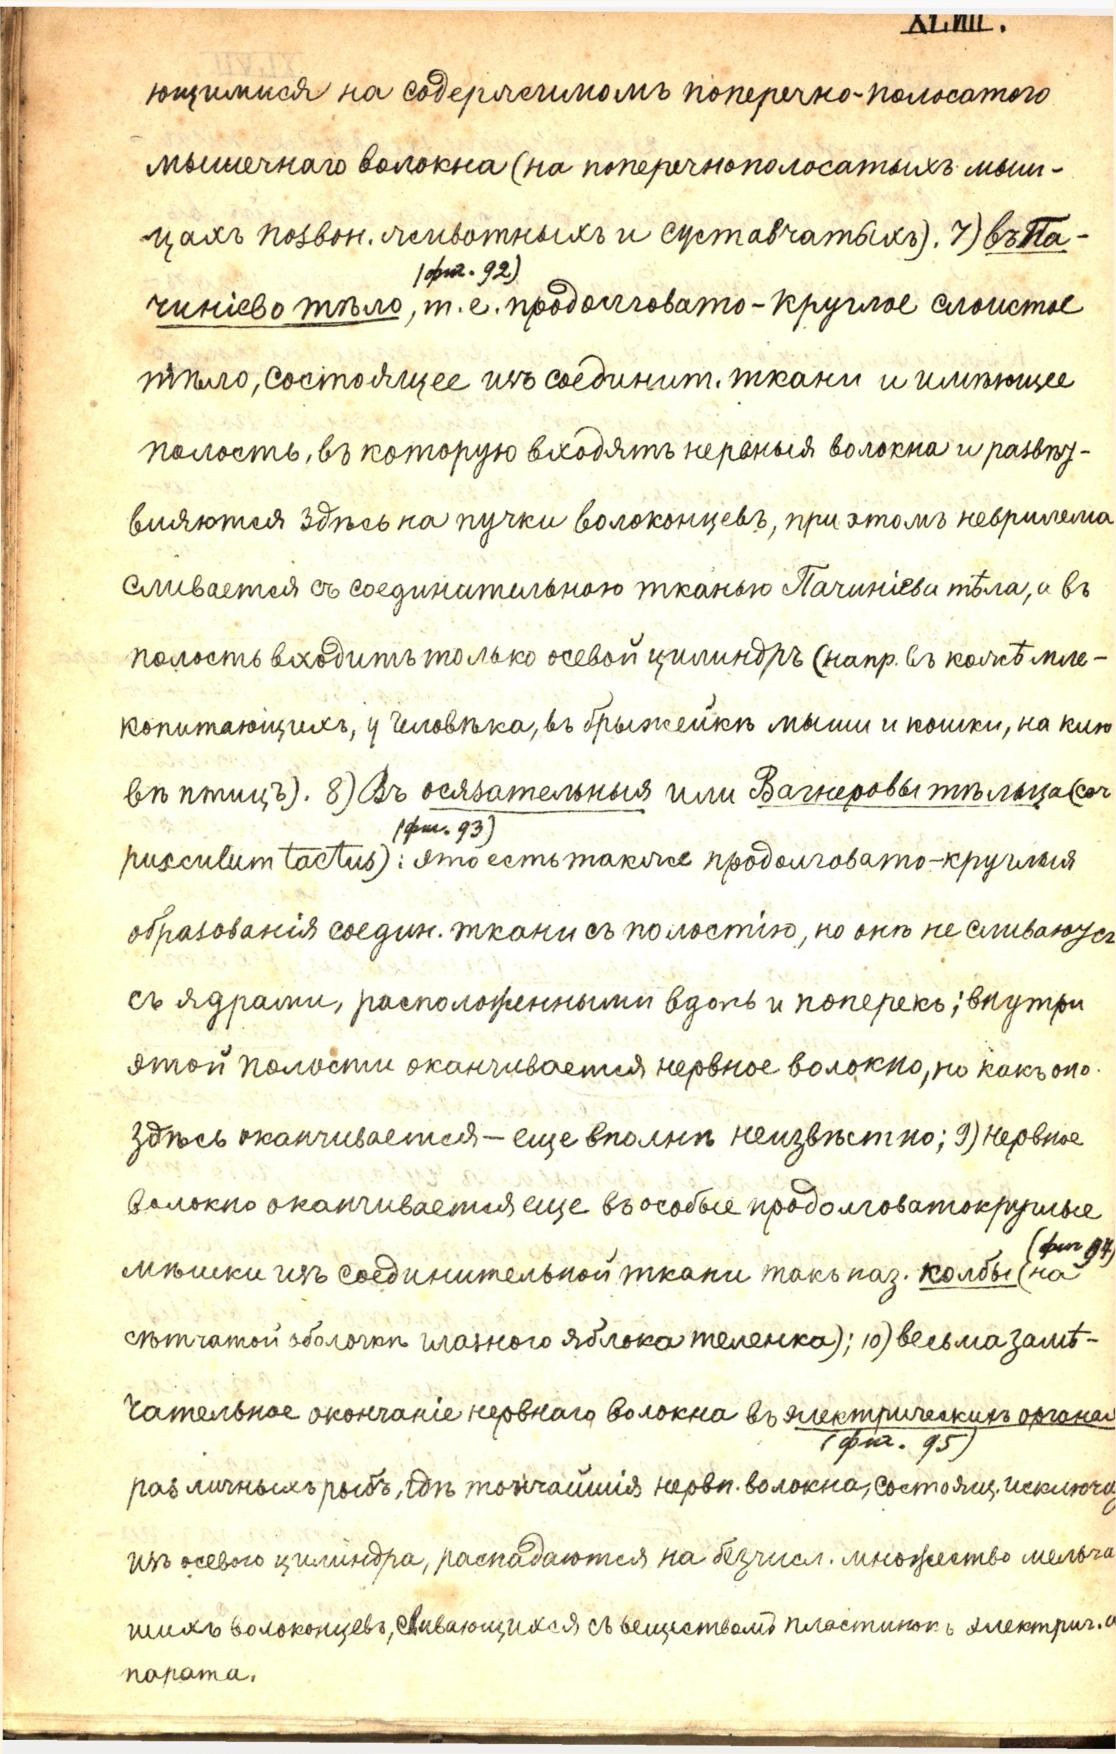 XLVIII.
ющимися на содержимомъ поперечно-полосатого
мышечнаго волокна (на поперечнополосатыхъ мыш-
цахъ позвон. животныхъ и суставчатыхъ). 7) въ Па-
(фиг. 92)
чиніево тѣло, т. е. продолговато-круглое слоистое
тѣло, состоящее изъ соединит. ткани и имѣющее
полость, въ которую входятъ нервныя волокна и развѣт-
вляются здѣсь на пучки волоконцевъ, при этомъ неврилема
сливается съ соединительною тканью Пачиніева тѣла, а въ
полость входитъ только осевой цилиндръ (напр. въ кожѣ мле-
копитающихъ, у человѣка, въ брыжейкѣ мыши и кошки, на клю
вѣ птицъ). 8) Въ осязательныя или Вагнеровы тѣльца (cor
(фиг. 93)
pusculum tactus): это есть также продолговато-круглыя
образованія соедин. ткани съ полостію, но онѣ не сливаются
съ ядрами, расположенными вдоль и поперекъ; внутри
этой полости оканчивается нервное волокно, но какъ оно
здѣсь оканчивается — еще вполнѣ неизвѣстно; 9) нервное
волокно оканчивается еще въ особые продолговатокруглые
(фиг 94)
мѣшки изъ соединительной ткани такъ наз. колбы (на
сѣтчатой оболочкѣ глазного яблока теленка); 10) весьма замѣ-
чательное окончаніе нервнаго волокна въ электрическихъ органах
(фиг. 95)
различныхъ рыбъ, гдѣ тончайшія нервн. волокна, состоящ. исключ
изъ осевого цилиндра, распадаются на безчисл. множество мельча
шихъ волоконцевъ, сливающихся съ веществомъ пластинокъ электрич. а
парата.